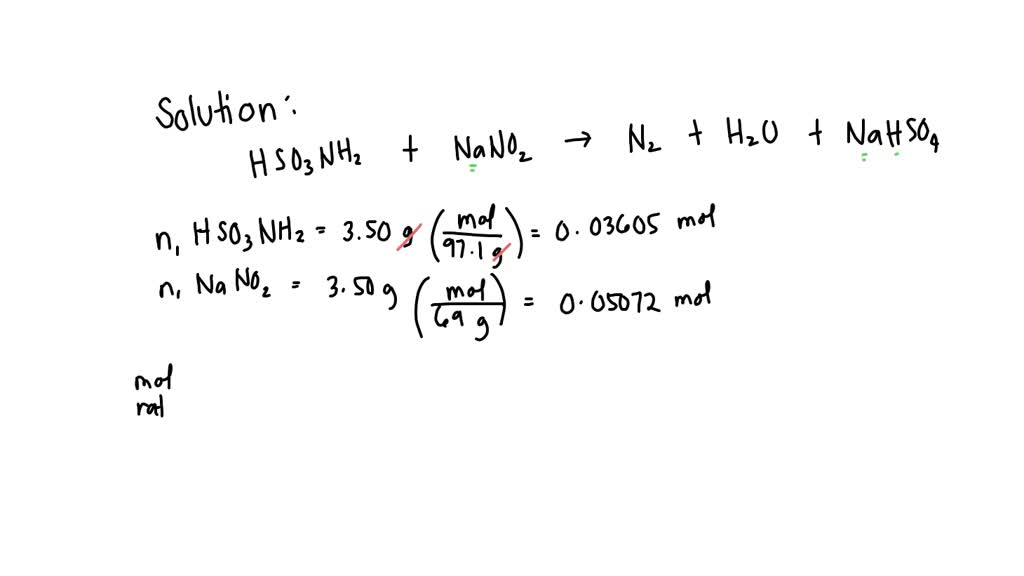 Solution:
HSO₃NH₂ + NaNO₂ → N₂ + H₂O + NaHSO₄
n, HSO₃NH₂ = 3.50 g (mol / 97.1 g) = 0.03605 mol
n, NaNO₂ = 3.50 g (mol / 69 g) = 0.05072 mol
mol
rat